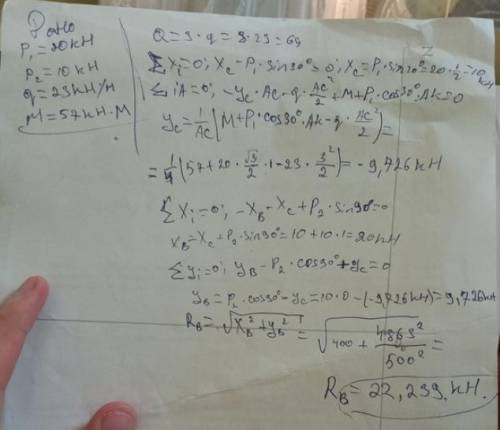 Дано
P₁=20кН
P₂=10кН
q=23кН/м
M=57кН·м
Q=3·q=3·23=69
2
ΣXi=0; Xc-P₁·sin30°=0; Xc=P₁·sin30°=20·1/2=10 кН
ΣiA=0; -Yc·AC-q·AC²/2+M+P₁·cos30°·AK=0
Yc=1/AC(M+P₁·cos30°·AK-q·AC²/2)=
=1/4(57+20·√3/2·1-23·3²/2)=-9,726кН
ΣXi=0; -XB-Xc+P₂·sin90=0
XB=-Xc+P₂·sin90°=10+10·1=20кН
Σyi=0; YB-P₂·cos90°+Yc=0
YB=P₂·cos90°-Yc=10·0-(-9,726кН)=9,726кН
RB=√XB²+YB²=√400+4863²/500²=
RB=22,239 кН.